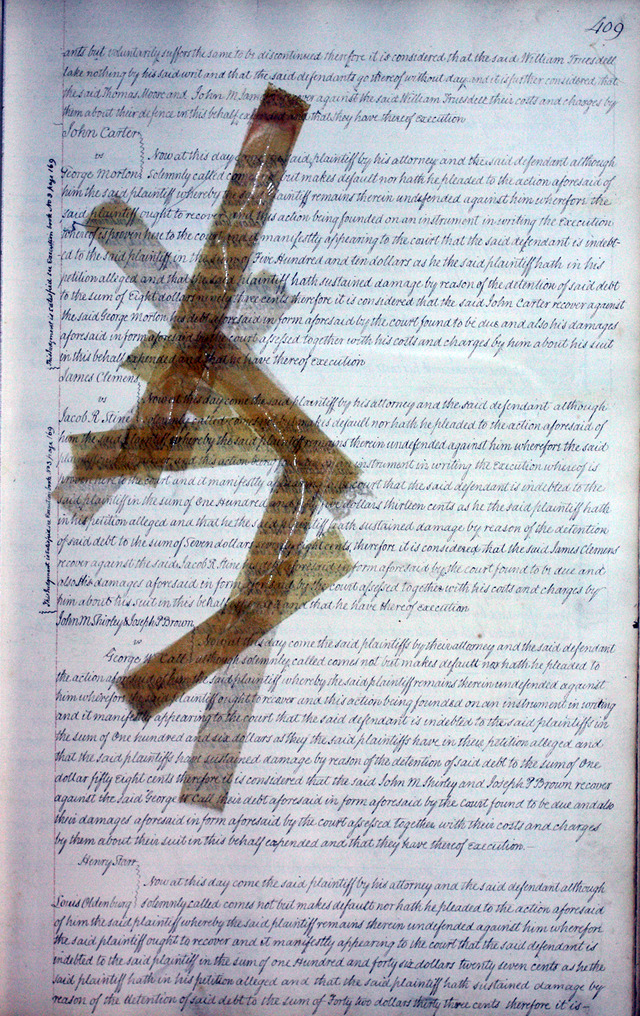 409
ants but voluntarily suffers the same to be discontinued therefore it is considered that the said William Truesdell
take nothing by his said writ and that the said defendants go thereof without day and it is further considered that
the said Thomas Moore and John M. against the said William Truesdell their costs and charges by
them about their defence in this behalf expended and that they have thereof execution
John Carter
vs Now at this day said plaintiff by his attorney and the said defendant although
George Morton solemnly called but makes default nor hath he pleaded to the action aforesaid of
him the said plaintiff whereby the plaintiff remains therein undefended against him wherefore the
said plaintiff ought to recover and this action being founded on an instrument in writing the Execution
whereof is proven to the court and manifestly appearing to the court that the said defendant is indebt-
-ed to the said plaintiff in the sum of Five Hundred and ten dollars as he the said plaintiff hath in his
petition alleged and that the said plaintiff hath sustained damage by reason of the detention of said debt
to the sum of Eight dollars ninety three cents therefore it is considered that the said John Carter recover against
the said George Morton his debt aforesaid in form aforesaid by the court found to be due and also his damages
aforesaid in form aforesaid by the court afsefsed together with his costs and charges by him about his suit
in this behalf expended and that he have thereof execution
This Judgment is satisfied see Execution book No 3 page 169
James Clemens
vs Now at this day come the said plaintiff by his attorney and the said defendant although
Jacob R. Stine solemnly called comes not but makes default nor hath he pleaded to the action aforesaid of
him the said plaintiff whereby the said plaintiff remains therein undefended against him wherefore the said
plaintiff this action being instrument in writing the Execution whereof is
to the court and it manifestly court that the said defendant is indebted to the
said plaintiff in the sum of One Hundred and dollars thirteen cents as he the said plaintiff hath
in his petition alleged and that he the said plaintiff hath sustained damage by reason of the detention
of said debt to the sum of Seven dollars eight cents, therefore it is considered that the said James Clemens
recover against the said Jacob R. Stine in form aforesaid by the court found to be due and
also his damages aforesaid in form by the court afsefsed together with his costs and charges by
him about his suit in this behalf and that he have thereof execution
This Judgment is satisfied see Execution book No 3 page 169
John M Shirley & Joseph P Brown
vs Now at this day come the said plaintiffs by their attorney and the said defendant
George W Call although solemnly called comes not but makes default nor hath he pleaded to
the action aforesaid of the said plaintiff whereby the said plaintiff remains therein undefended against
him wherefore the said plaintiff ought to recover and this action being founded on an instrument in writing
and it manifestly appearing to the court that the said defendant is indebted to the said plaintiffs in
the sum of One hundred and six dollars as they the said plaintiffs have in these petition alleged and
that the said plaintiffs have sustained damage by reason of the detention of said debt to the sum of One
dollar fifty Eight cents therefore it is considered that the said John M Shirly and Joseph P Brown recover
against the said George W Call their debt aforesaid in form aforesaid by the Court found to be due and also
their damages aforesaid in form aforesaid by the court afsefsed together with their costs and charges
by them about their suit in this behalf expended and that they have thereof Execution.—
Henry Starr
Now at this day come the said plaintiff by his attorney and the said defendant although
Louis Oldenburg solemnly called comes not but makes default nor hath he pleaded to the action aforesaid
of him the said plaintiff whereby the said plaintiff remains therein undefended against him wherefore
the said plaintiff ought to recover and it manifestly appearing to the court that the said defendant is
indebted to the said plaintiff in the sum of one Hundred and forty six dollars twenty seven cents as he the
said plaintiff hath in his petition alleged and that the said plaintiff hath sustained damage by
reason of the detention of said debt to the sum of Forty two dollars thirty three cents therefore it is—